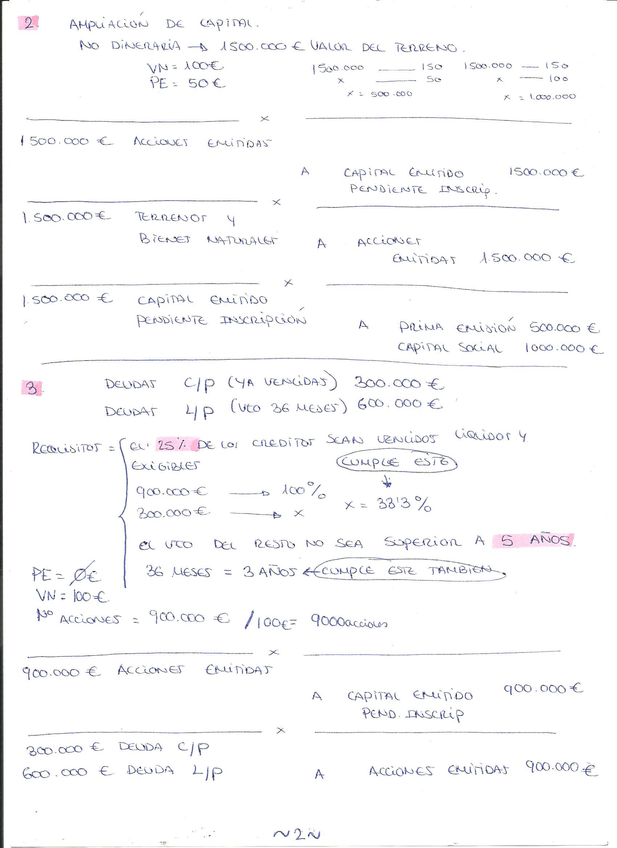 2. AMPLIACIÓN DE CAPITAL.
NO DINERARIA → 1500.000 € VALOR DEL TERRENO.
VN = 100€
PE = 50 €
1500.000 — 150
x — 50
x = 500.000
1500.000 — 150
x — 100
x = 1.000.000
x
1500.000 € ACCIONES EMITIDAS
A CAPITAL EMITIDO 1500.000 €
PENDIENTE INSCRIP.
x
1.500.000 € TERRENOS Y
BIENES NATURALES A ACCIONES
EMITIDAS 1500.000 €
x
1.500.000 € CAPITAL EMITIDO
PENDIENTE INSCRIPCIÓN
A PRIMA EMISIÓN 500.000 €
CAPITAL SOCIAL 1000.000 €
3. DEUDAS C/P (YA VENCIDAS) 300.000 €
DEUDAS L/P (VCO 36 MESES) 600.000 €
REQUISITOS = EL 25% DE LOS CREDITOS SEAN VENCIDOS LÍQUIDOS Y
EXIGIBLES CUMPLE ESTE
900.000 € → 100%
300.000 € → x
x = 33'3%
EL VCO DEL RESTO NO SEA SUPERIOR A 5 AÑOS.
36 MESES = 3 AÑOS ← CUMPLE ESTE TAMBIEN.
PE = Ø€
VN = 100 €
Nº ACCIONES = 900.000 € / 100€ = 9000 acciones
x
900.000 € ACCIONES EMITIDAS
A CAPITAL EMITIDO 900.000 €
PEND. INSCRIP
x
300.000 € DEUDA C/P
600.000 € DEUDA L/P A ACCIONES EMITIDAS 900.000 €
~2~